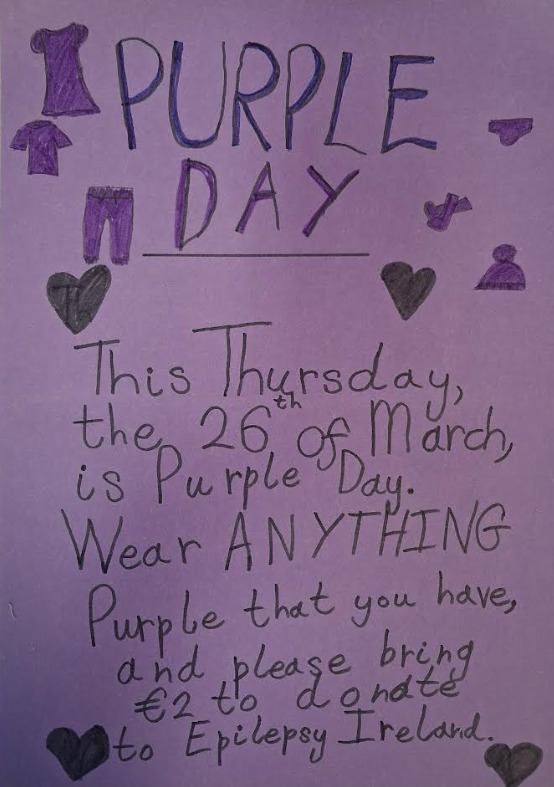 PURPLE
DAY
This Thursday,
the 26th of March,
is Purple Day.
Wear ANYTHING
Purple that you have,
and please bring
€2 to donate
to Epilepsy Ireland.